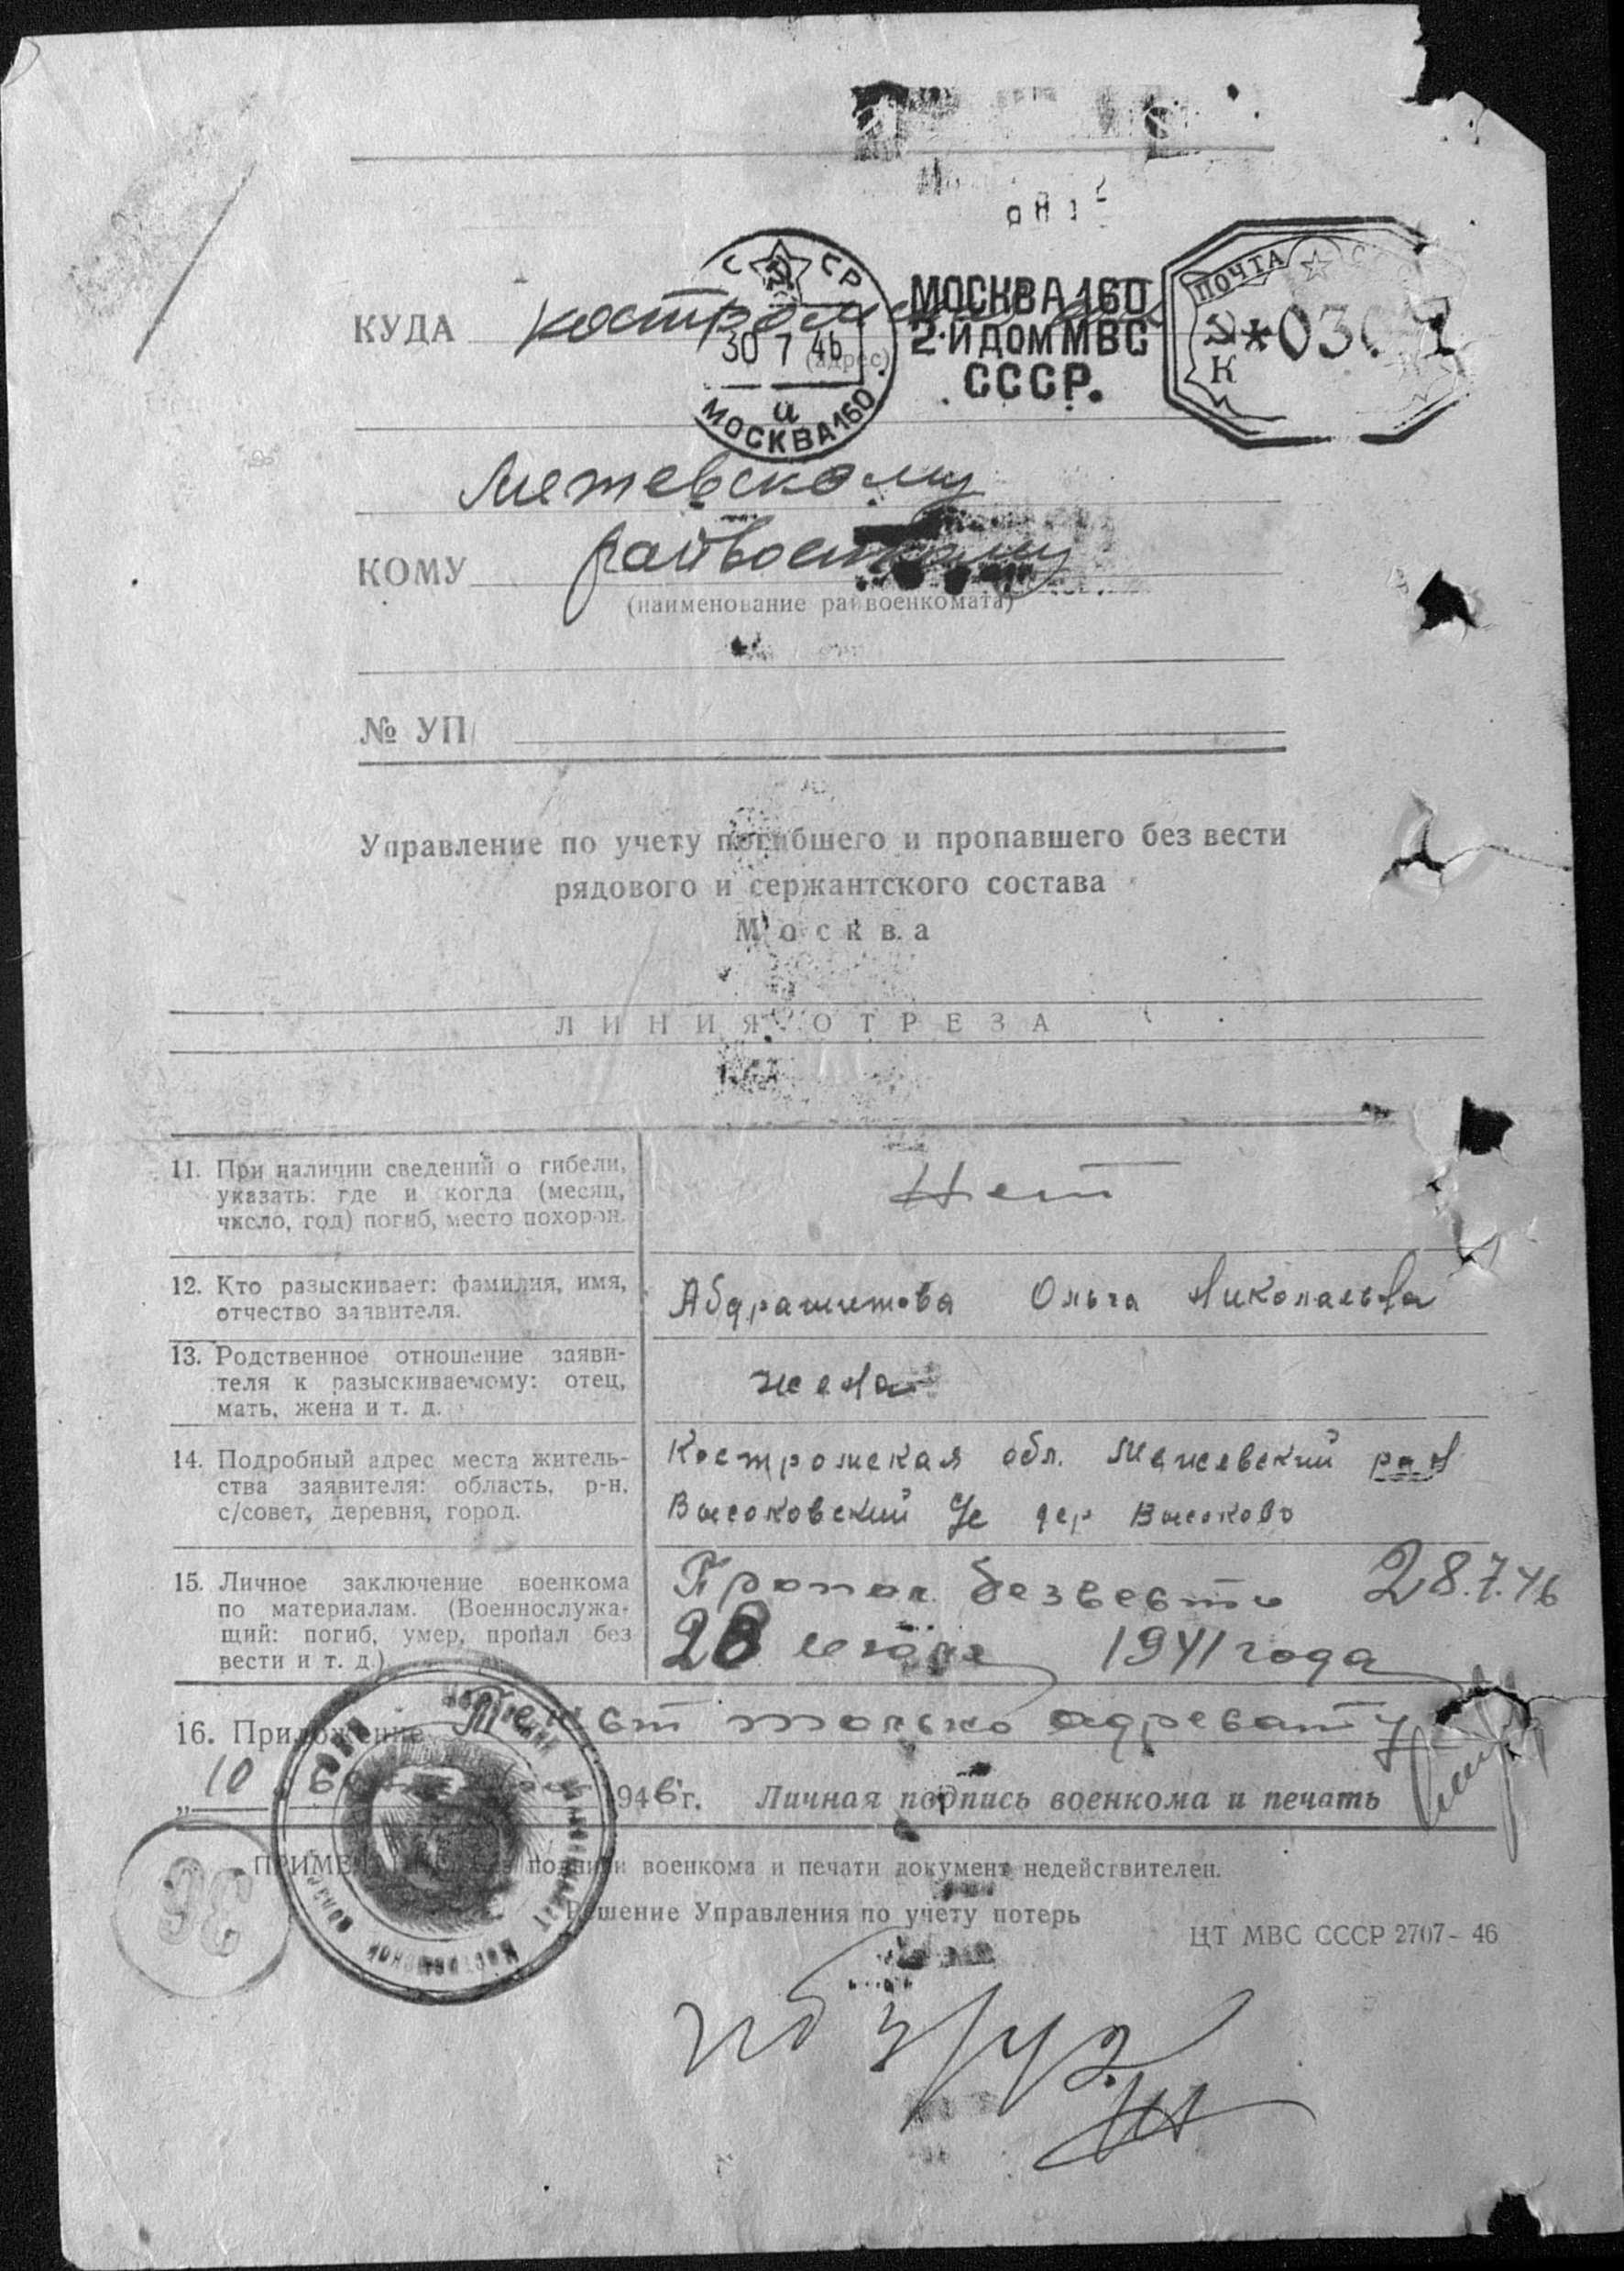 С СР
30 7 46
а
МОСКВА 160
МОСКВА 160
2-Й ДОМ МВС
СССР.
ПОЧТА
К
КУДА
(адрес)
Межевскому
КОМУ райвоенкому
(наименование райвоенкомата)
№ УП
Управление по учету погибшего и пропавшего без вести
рядового и сержантского состава
Москва
ЛИНИЯ ОТРЕЗА
11. При наличии сведений о гибели,
указать: где и когда (месяц,
число, год) погиб, место похорон.
Нет
12. Кто разыскивает: фамилия, имя,
отчество заявителя.
Абдрашитова Ольга Николаевна
13. Родственное отношение заяви-
теля к разыскиваемому: отец,
мать, жена и т. д.
жена
14. Подробный адрес места житель-
ства заявителя: область, р-н,
с/совет, деревня, город.
Костромская обл. Межевский р-н
Высоковский с/с дер Высоково
15. Личное заключение военкома
по материалам. (Военнослужа-
щий: погиб, умер, пропал без
вести и т. д.)
Пропал безвести 28.7.46
28 июля 1941 года
16. Приложение только
„ 10 1946 г. Личная подпись военкома и печать
ПРИМЕЧАНИЕ: без подписи военкома и печати документ недействителен.
Решение Управления по учету потерь
ЦТ МВС СССР 2707-46
36